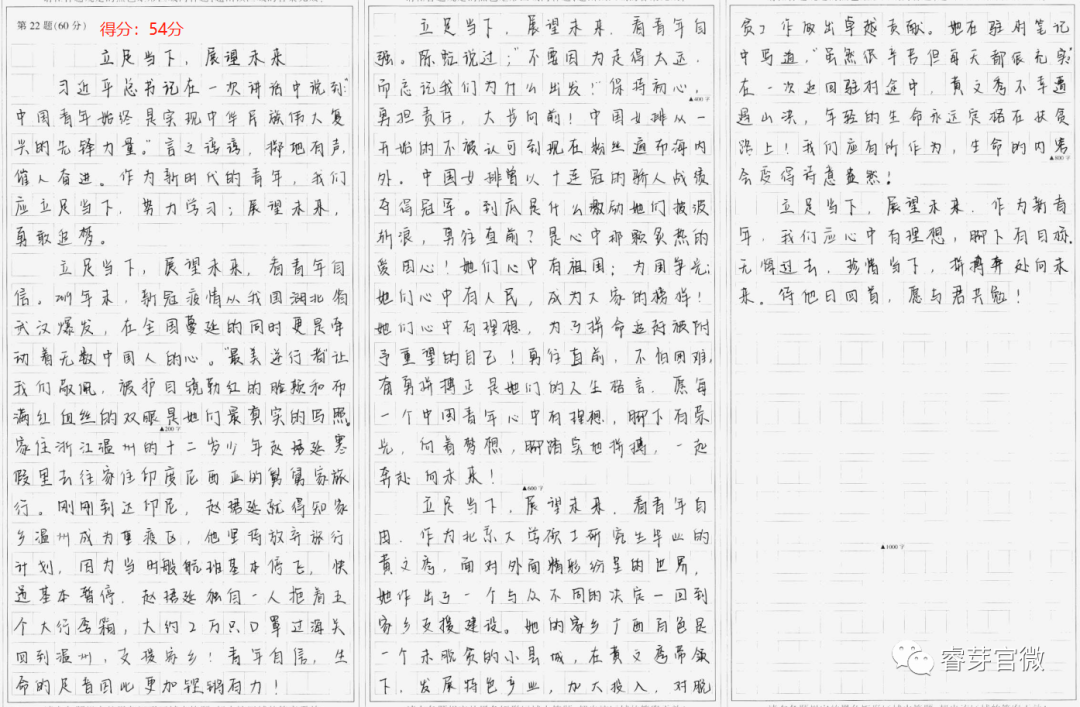 第22题(60分)
得分：54分
立足当下，展望未来
习近平总书记在一次讲话中说到“
中国青年始终是实现中华民族伟大复
兴的先锋力量。”言之谆谆，掷地有声，
催人奋进。作为新时代的青年，我们
应立足当下，努力学习；展望未来，
勇敢追梦。
立足当下，展望未来，看青年自
信。2019年末，新冠疫情从我国湖北省
武汉爆发，在全国蔓延的同时更是牵
动着无数中国人的心。“最美逆行者”让
我们敬佩，被护目镜勒红的脸颊和布
满红血丝的双眼是他们最真实的写照。
▲200字
家住浙江温州的十二岁少年赵珺延寒
假里去往家住印度尼西亚的舅舅家旅
行。刚刚到达印尼，赵珺延就得知家
乡温州成为重疫区，他坚持放弃旅行
计划，因为当时般航班基本停飞，快
递基本暂停，赵珺延独自一人拖着五
个大行李箱，大约2万只口罩过海关
回到温州，支援家乡！青年自信，生
命的足音因此更加铿锵有力！
立足当下，展望未来，看青年自
强。陈虹说过：“不要因为走得太远，
而忘记我们为什么出发！”保持初心，
▲400字
勇担责任，大步向前！中国女排从一
开始的不被认可到现在粉丝遍布海内
外。中国女排曾以十连冠的骄人战绩
夺得冠军。到底是什么激励她们披波
斩浪，勇往直前？是心中那颗炙热的
爱国心！她们心中有祖国；为国争光；
她们心中有人民，成为大家的榜样！
她们心中有理想，为了拼命运转被附
予重望的自己！勇往直前，不怕困难，
有勇拼搏正是她们的人生格言，愿每
一个中国青年心中有理想，脚下有荣
光，向着梦想，脚踏实地拼搏，一起
奔赴向未来！
▲600字
立足当下，展望未来，看青年自
由。作为北京大学硕士研究生毕业的
黄文秀，面对外面精彩纷呈的世界，
她作出了一个与众不同的决定—回到
家乡支援建设。她的家乡广西百色是
一个未脱贫的小县城，在黄文秀带领
下，发展特色产业，加大投入，对脱
贫工作做出卓越贡献。她在驻村笔记
中写道，“虽然很辛苦但每天都很充实”
在一次返回驻村途中，黄文秀不幸遭
遇山洪，年轻的生命永远定格在扶贫
路上！我们应有所作为，生命的内容
▲800字
会变得诗意盎然！
立足当下，展望未来，作为新青
年，我们应心中有理想，脚下有目标。
无悔过去，珍惜当下，拼搏奔赴向未
来。待他日回首，愿与君共勉！
▲1000字
睿芽官微